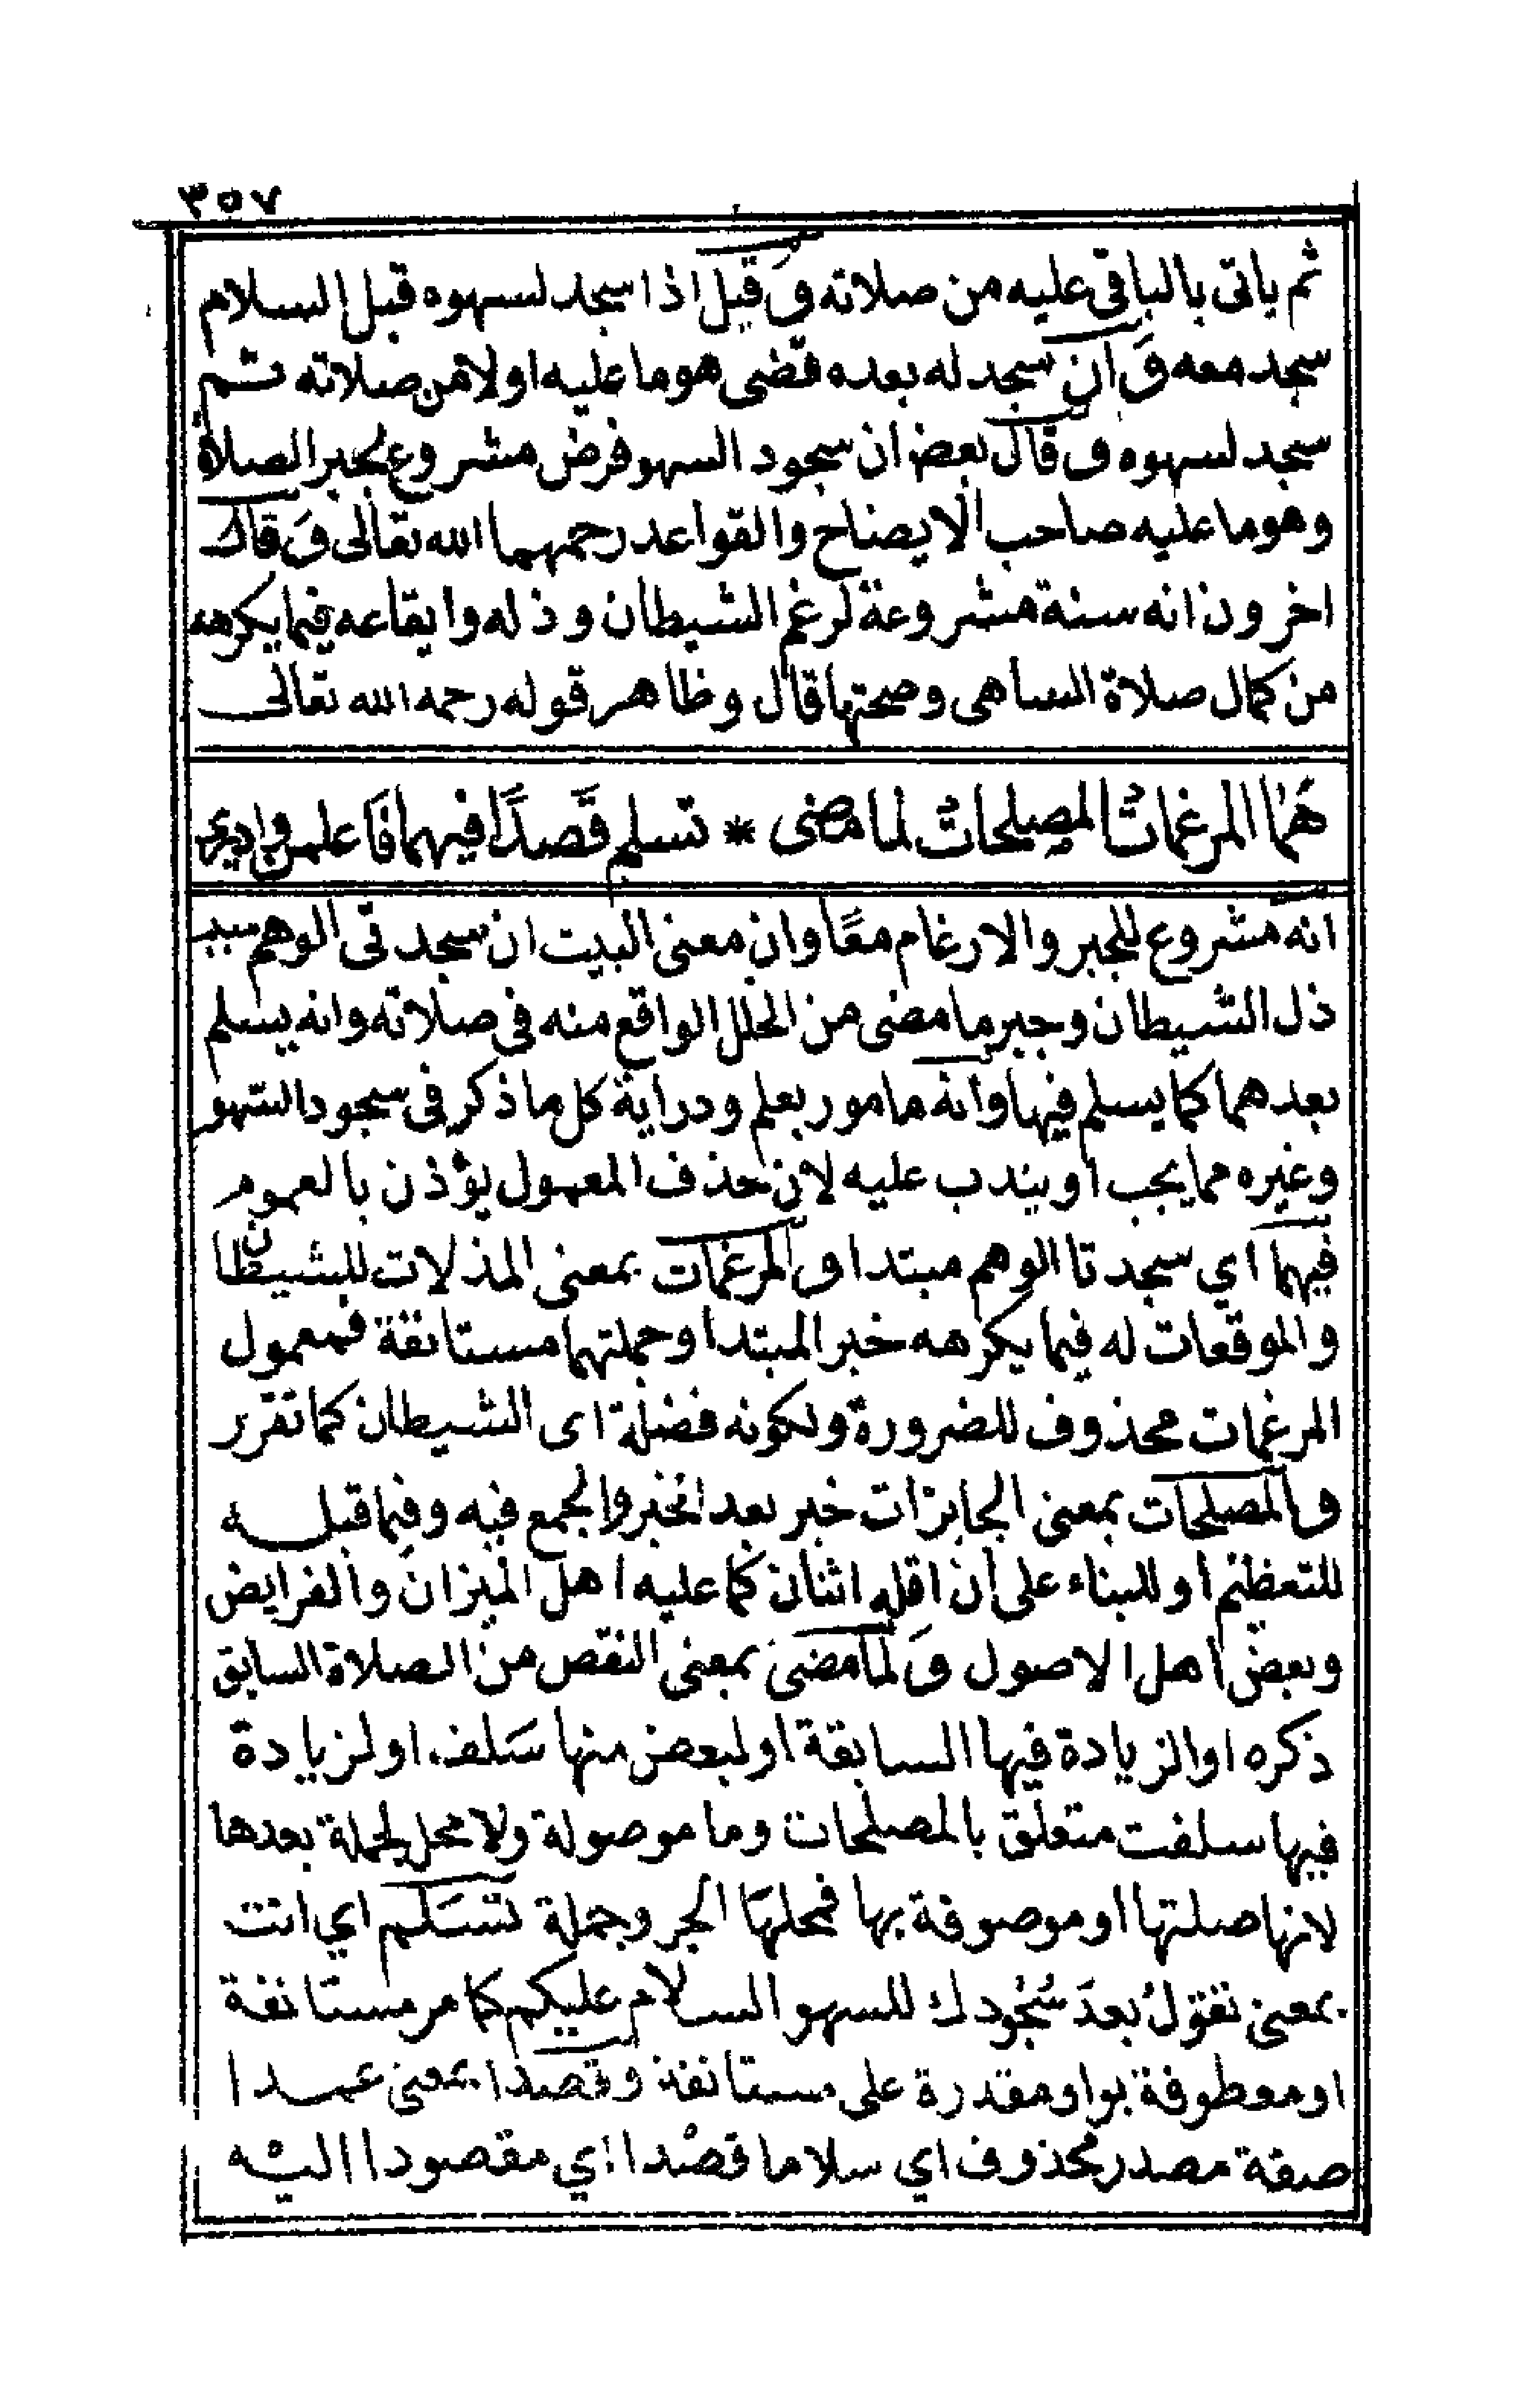 ٣٥٧
ثم ياتى بالباقى عليه من صلاته وَقيل اذا سجد لسهوه قبل السلام
سجد معه وَان سجد له بعده قضى هو ما عليه اولا من صلاته ثم
سجد لسهوه وقال بعض ان سجود السهو فرض مشروع لجبر الصلاة
وهو ما عليه صاحب الايضاح والقواعد رحمهما الله تعالى وَقال
اخرون انه سنة مشروعة لرغم الشيطان وذله وايقاعه فيما يكرهه
من كمال صلاة الساهى وصحتها قال وظاهر قوله رحمه الله تعالى
هُمَا المرغماتُ المصلحاتُ لما مضى * تسلم قَصدًا فيهما فَاعلمن وادرى
انه مشروع للجبر والارغام معًا وان معنى البيت ان سجدتى الوهم سبب
ذل الشيطان وجبر ما مضى من الخلل الواقع منه فى صلاته وانه يسلم
بعدهما كما يسلم فيها وانه مامور بعلم ودراية كل ما ذكر فى سجود السهو
وغيره مما يجب او يندب عليه لان حذف المعمول يؤذن بالعموم
فيهما اي سجدتا الوهم مبتدا والمرغمات بمعنى المذلات للشيطان
والموقعات له فيما يكرهه خبر المبتدا وجملتهما مستانفة فمعمول
المرغمات محذوف للضرورة ولكونه فضلة اى الشيطان كما تقرر
والمصلحات بمعنى الجابرات خبر بعد الخبر والجمع فيه وفيما قبله
للتعظيم او للبناء على ان اقله اثنان كما عليه اهل الميزان والفرايض
وبعض اهل الاصول وَلما مضى بمعنى النقص من الصلاة السابق
ذكره او الزيادة فيها السابقة او لبعض منها سَلف، او لزيادة
فيها سلفت متعلق بالمصلحات وما موصولة ولا محل لجملة بعدها
لانها صلتها او موصوفة بها فمحلها الجر وجملة تسَلم اي انت
بمعنى تقولُ بعدَ سُجُودك للسهو السلام عليكم كما مر مستانفة
او معطوفة بواو مقدرة على مستانفة وقصدا بمعنى عمدا
صفة مصدر محذوف اي سلاما قصْدا اي مقصودا اليْه